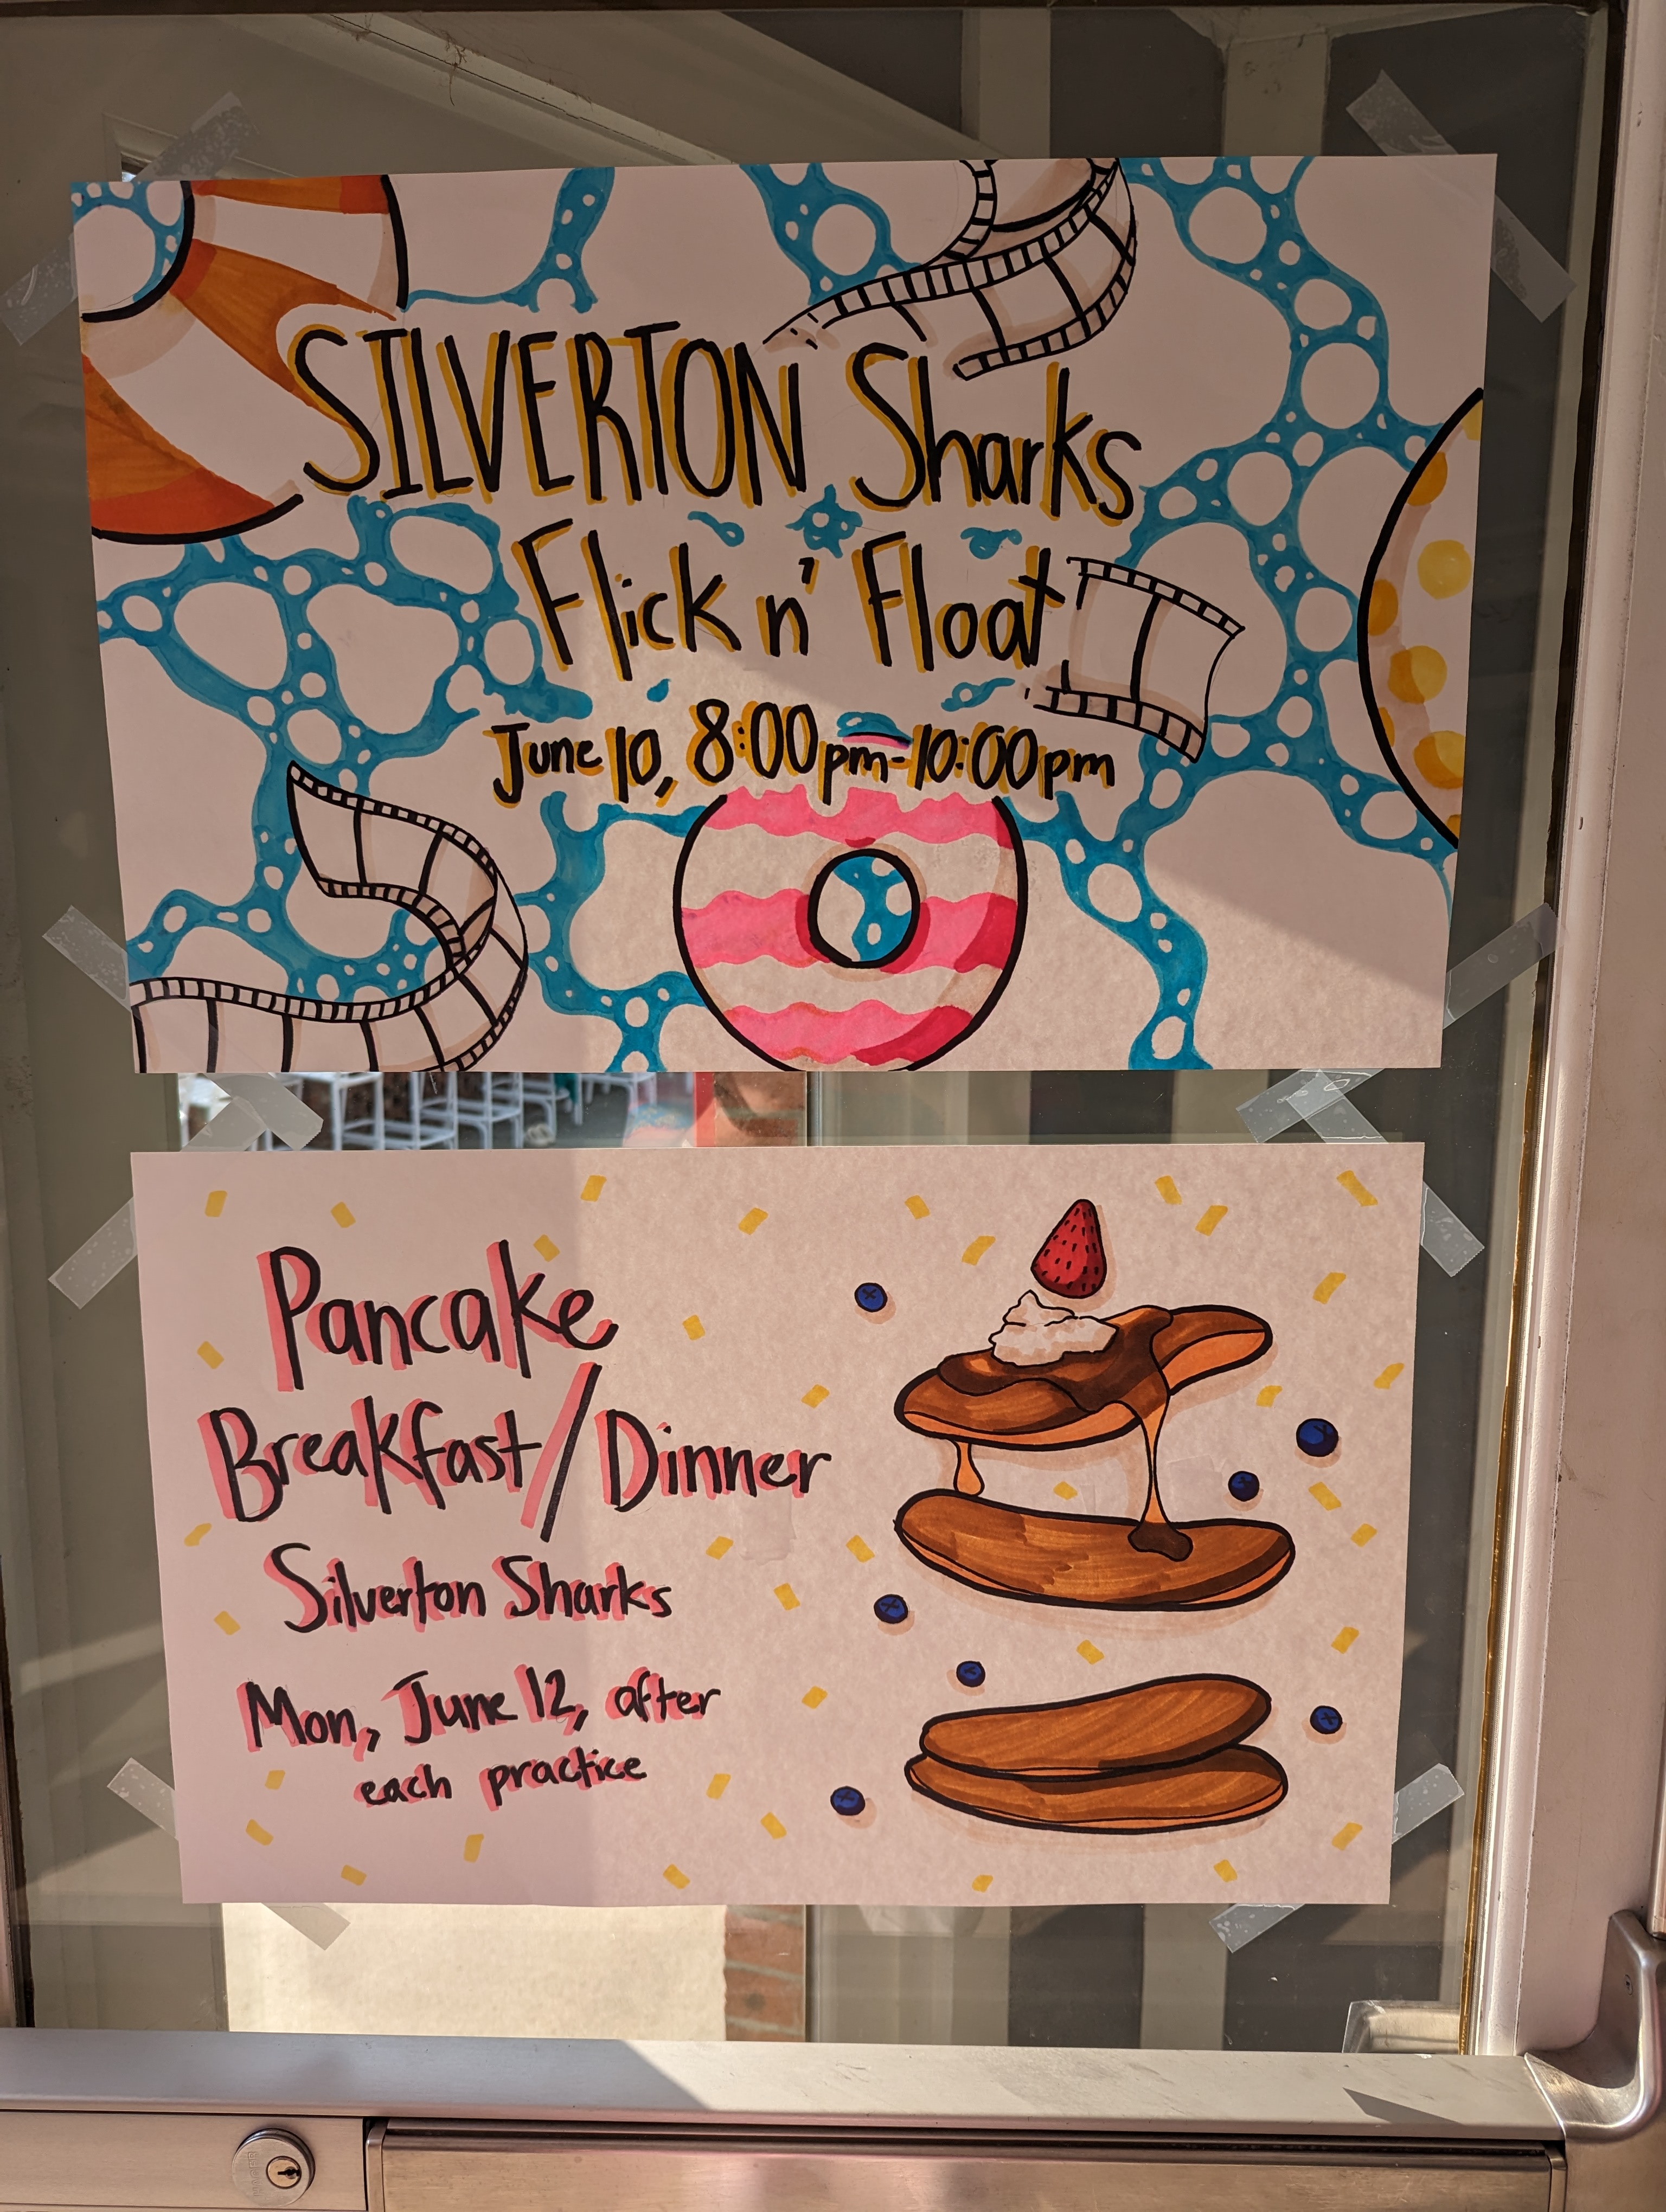 SILVERTON Sharks
Flick n' Float
June 10, 8:00pm-10:00pm
Pancake
Breakfast/Dinner
Silverton Sharks
Mon, June 12, after
each practice